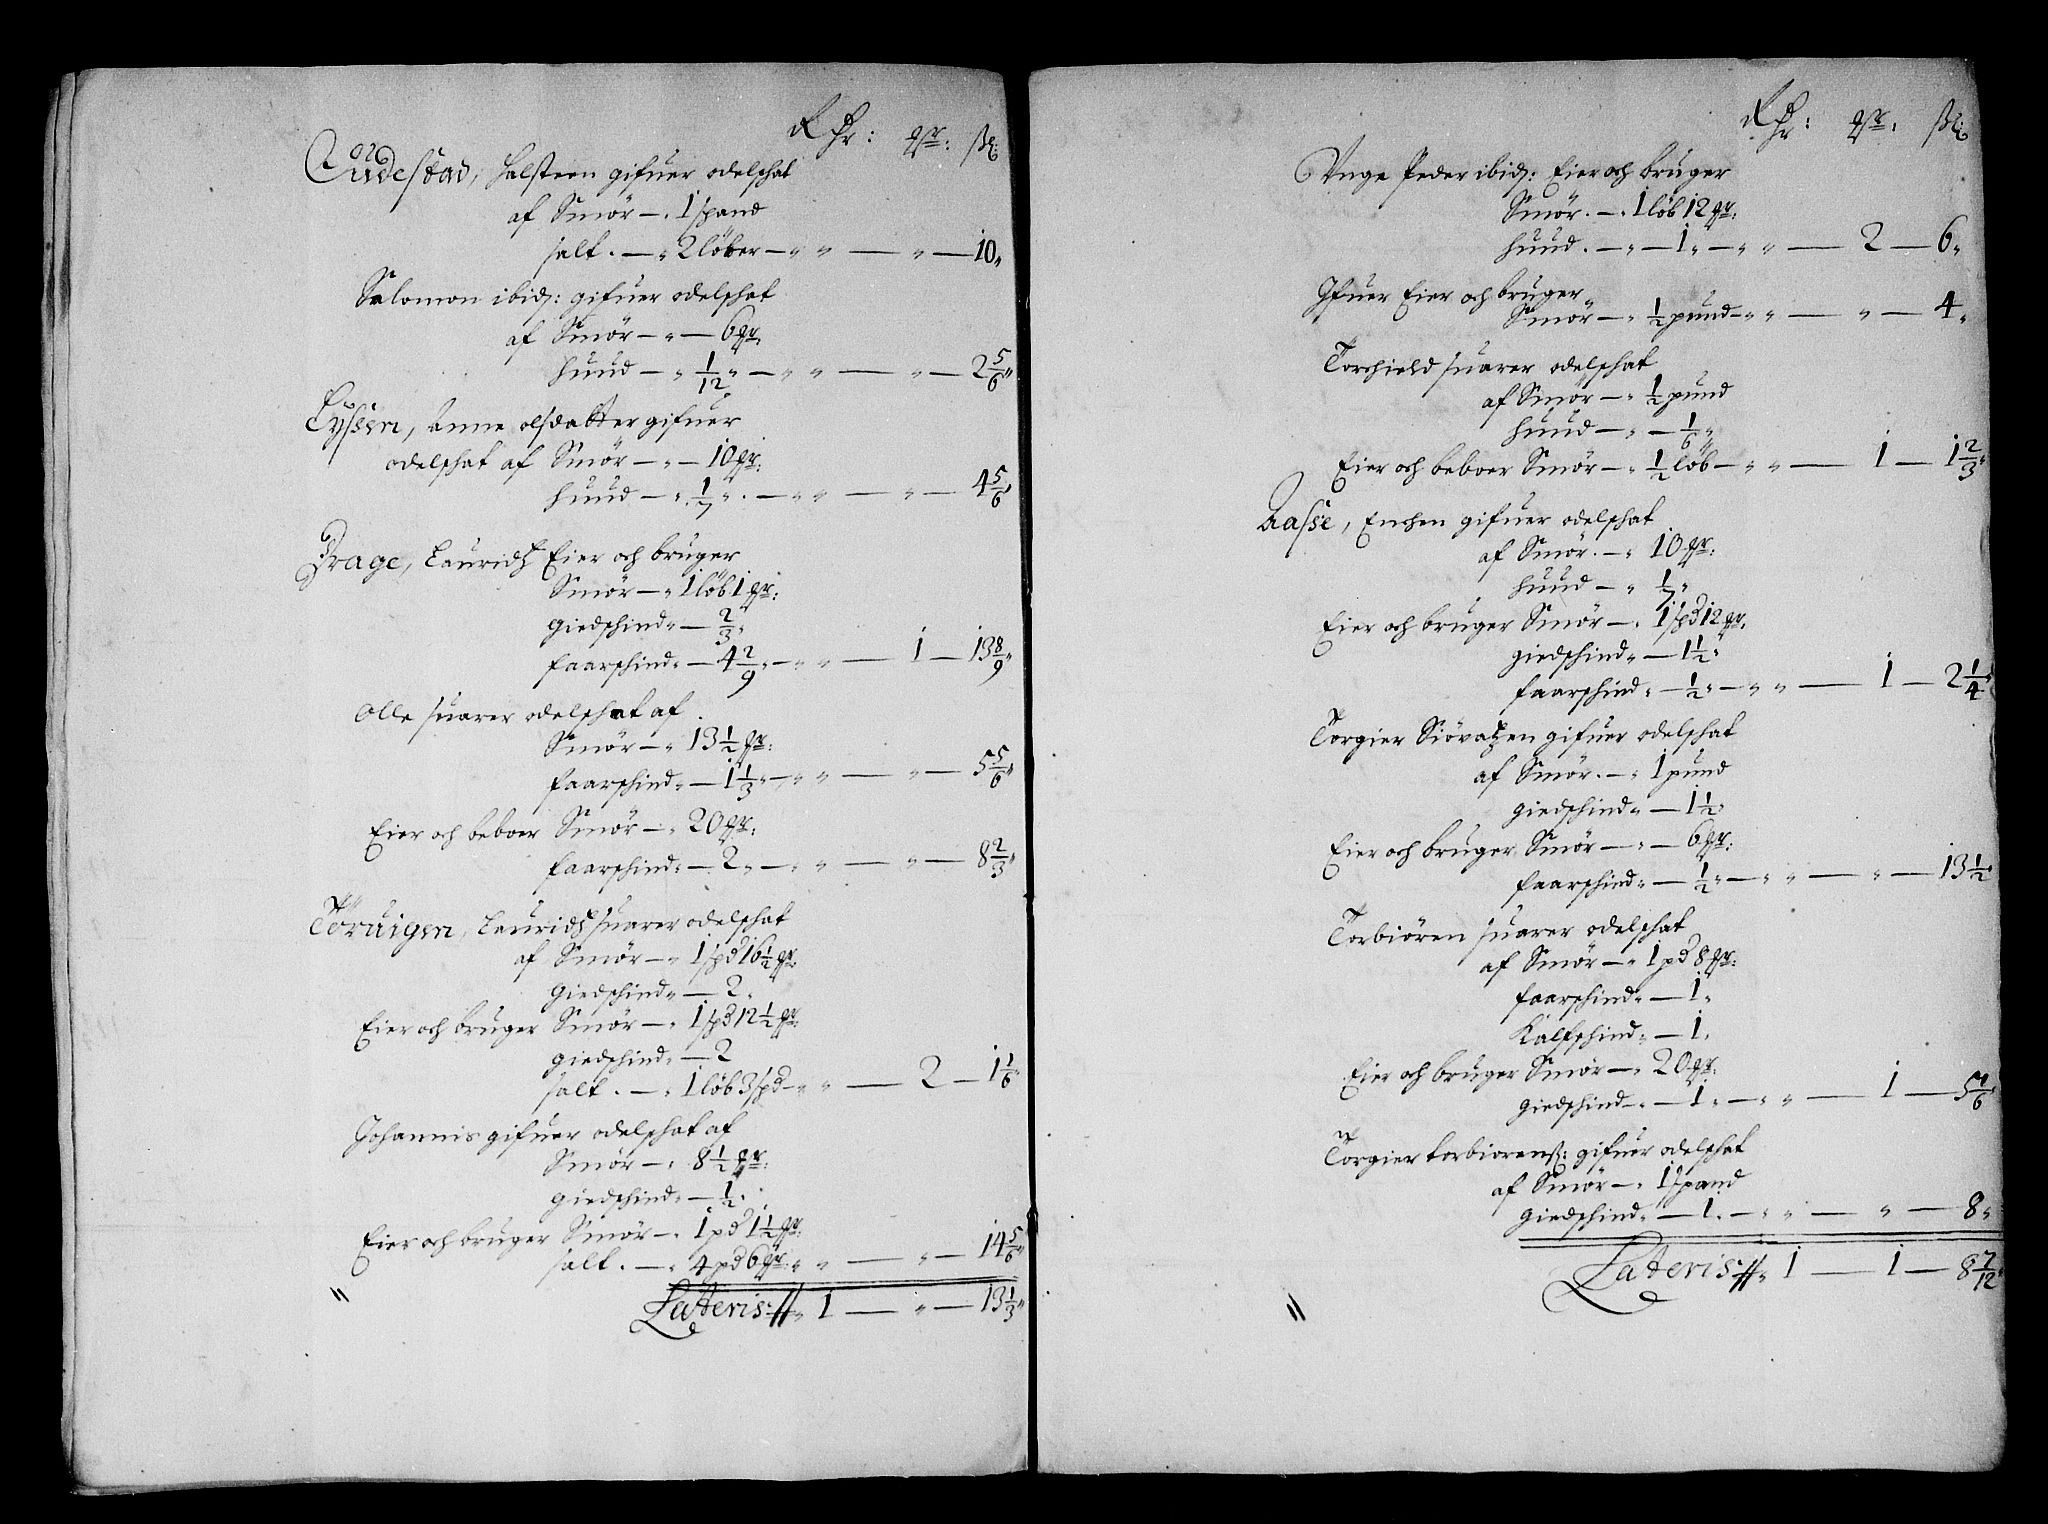 Rdr: Qr: ßl:
Eüdestad, Halsteen gifuer odelschat
af Smör — 1 spand
salt. — „ 2 löber — „ „ — „ — 10„
Salomon ibid: gifuer odelschat
af Smör — „ — 6 mr:
huud — „ 1/12 „ — „ „ — „ — 2 5/6„
Lyssen, Anne olsdatter gifuer
odelschat af Smör — „ — 10 mr:
huud — „ 1/7 „ — „ „ — „ — 4 5/6„
Drage, Lauridtz Eier och bruger
Smör — „ 1 löb 1 mr:
giedschind „ — 2/3 „
faarschind „ — 4 2/9 „ — „ „ — 1 — 13 8/9„
Olle suarer odelschat af
Smör — „ 13 1/2 mr:
faarschind „ — 1 1/3 „ — „ „ — „ — 5 5/6„
Eier och beboer Smör — „ 20 mr:
faarschind „ — 2 „ — „ „ — „ — 8 2/3„
Töruigen, Lauridtz suarer odelschat
af Smör — „ 1 spd 16 1/2 mr:
giedschind „ — 2 „
Eier och bruger Smör — „ 1 spd 12 1/2 mr:
giedschind „ — 2
salt. — „ 1 löb 3 spd — „ „ — 2 — 1 1/6„
Johannis gifuer odelschat af
Smör — „ 8 1/2 mr:
giedschind „ — 1/2 „
Eier och bruger Smör — „ 1 pd 1 1/2 mr:
salt. — „ 4 pd 6 mr: „ „ — „ — 14 5/6„
Lateris „ 1 — „ — 13 1/3„
Rdr: Qr: ßl:
Unge Peder ibid: Eier och bruger
Smör. — „ 1 löb 12 mr:
huud. — „ — 1 „ — „ „ — 2 — 6„
Ifuer Eier och bruger
Smör — „ 1/2 pund — „ „ — „ — 4„
Torchield suarer odelschat
af Smör — „ 1/2 pund
huud — „ — 1/6 „
Eier och beboer Smör — „ 1/2 löb — „ „ — 1 — 1 2/3„
Aasse, Enchen gifuer odelschat
af Smör. — „ 10 mr:
huud — „ 1/7 „
Eier och bruger Smör — „ 1 spd 12 mr:
giedschind „ — 1 1/2 „
faarschind „ — 1/2 „ — „ „ — 1 — 2 1/4„
Torgier Siövatzen gifuer odelschat
af Smör. — „ 1 pund
giedschind „ — 1 1/2 „
Eier och bruger Smör — „ — 6 mr:
faarschind „ — 1/2 „ — „ „ — „ — 13 1/2„
Torbiören suarer odelschat
af Smör — „ 1 pd 8 mr:
faarschind „ — 1 „
Kalfschind „ — 1 „
Eier och bruger Smör — „ 20 mr:
giedschind „ — 1 „ — „ „ — 1 — 5 1/6„
Torgier torbiörenß: gifuer odelschat
af Smör — „ 1 spand
giedschind „ — 1 „ — „ „ — „ — 8„
Lateris „ 1 — 1 — 8 7/12„